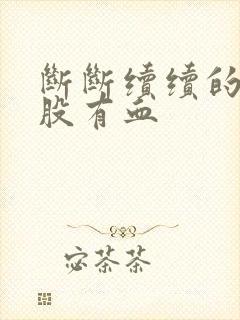 斷斷續續的
股有血
宓茶茶